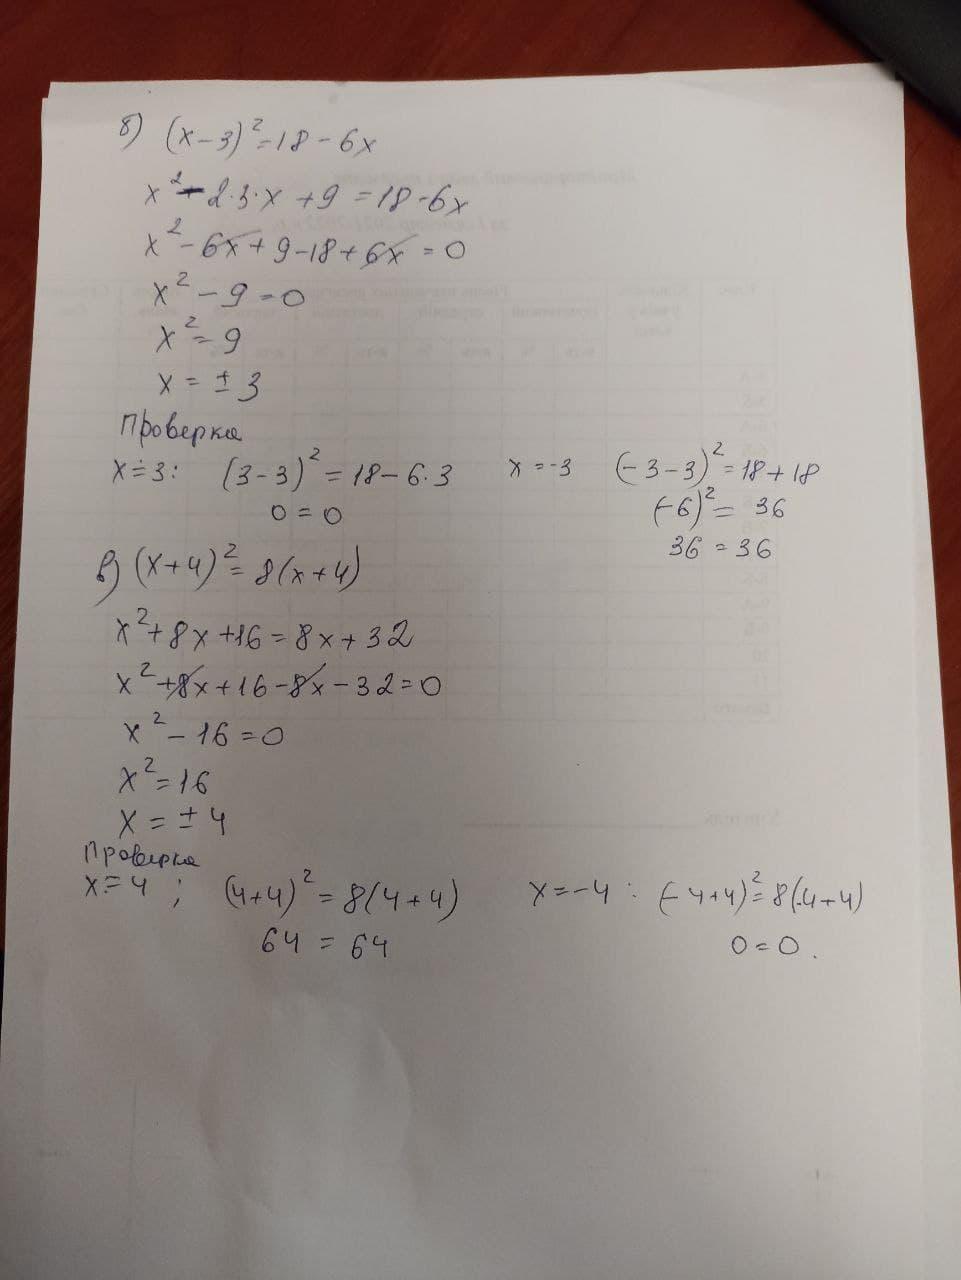 б) (x-3)²=18-6x
x²-2·3·x+9=18-6x
x²-6x+9-18+6x=0
x²-9=0
x²=9
x=±3
Проверка
x=3: (3-3)²=18-6·3 x=-3 (-3-3)²=18+18
0=0 (-6)²=36
36=36
в) (x+4)²=8(x+4)
x²+8x+16=8x+32
x²+8x+16-8x-32=0
x²-16=0
x²=16
x=±4
Проверка
x=4; (4+4)²=8(4+4) x=-4: (-4+4)²=8(-4+4)
64=64 0=0.